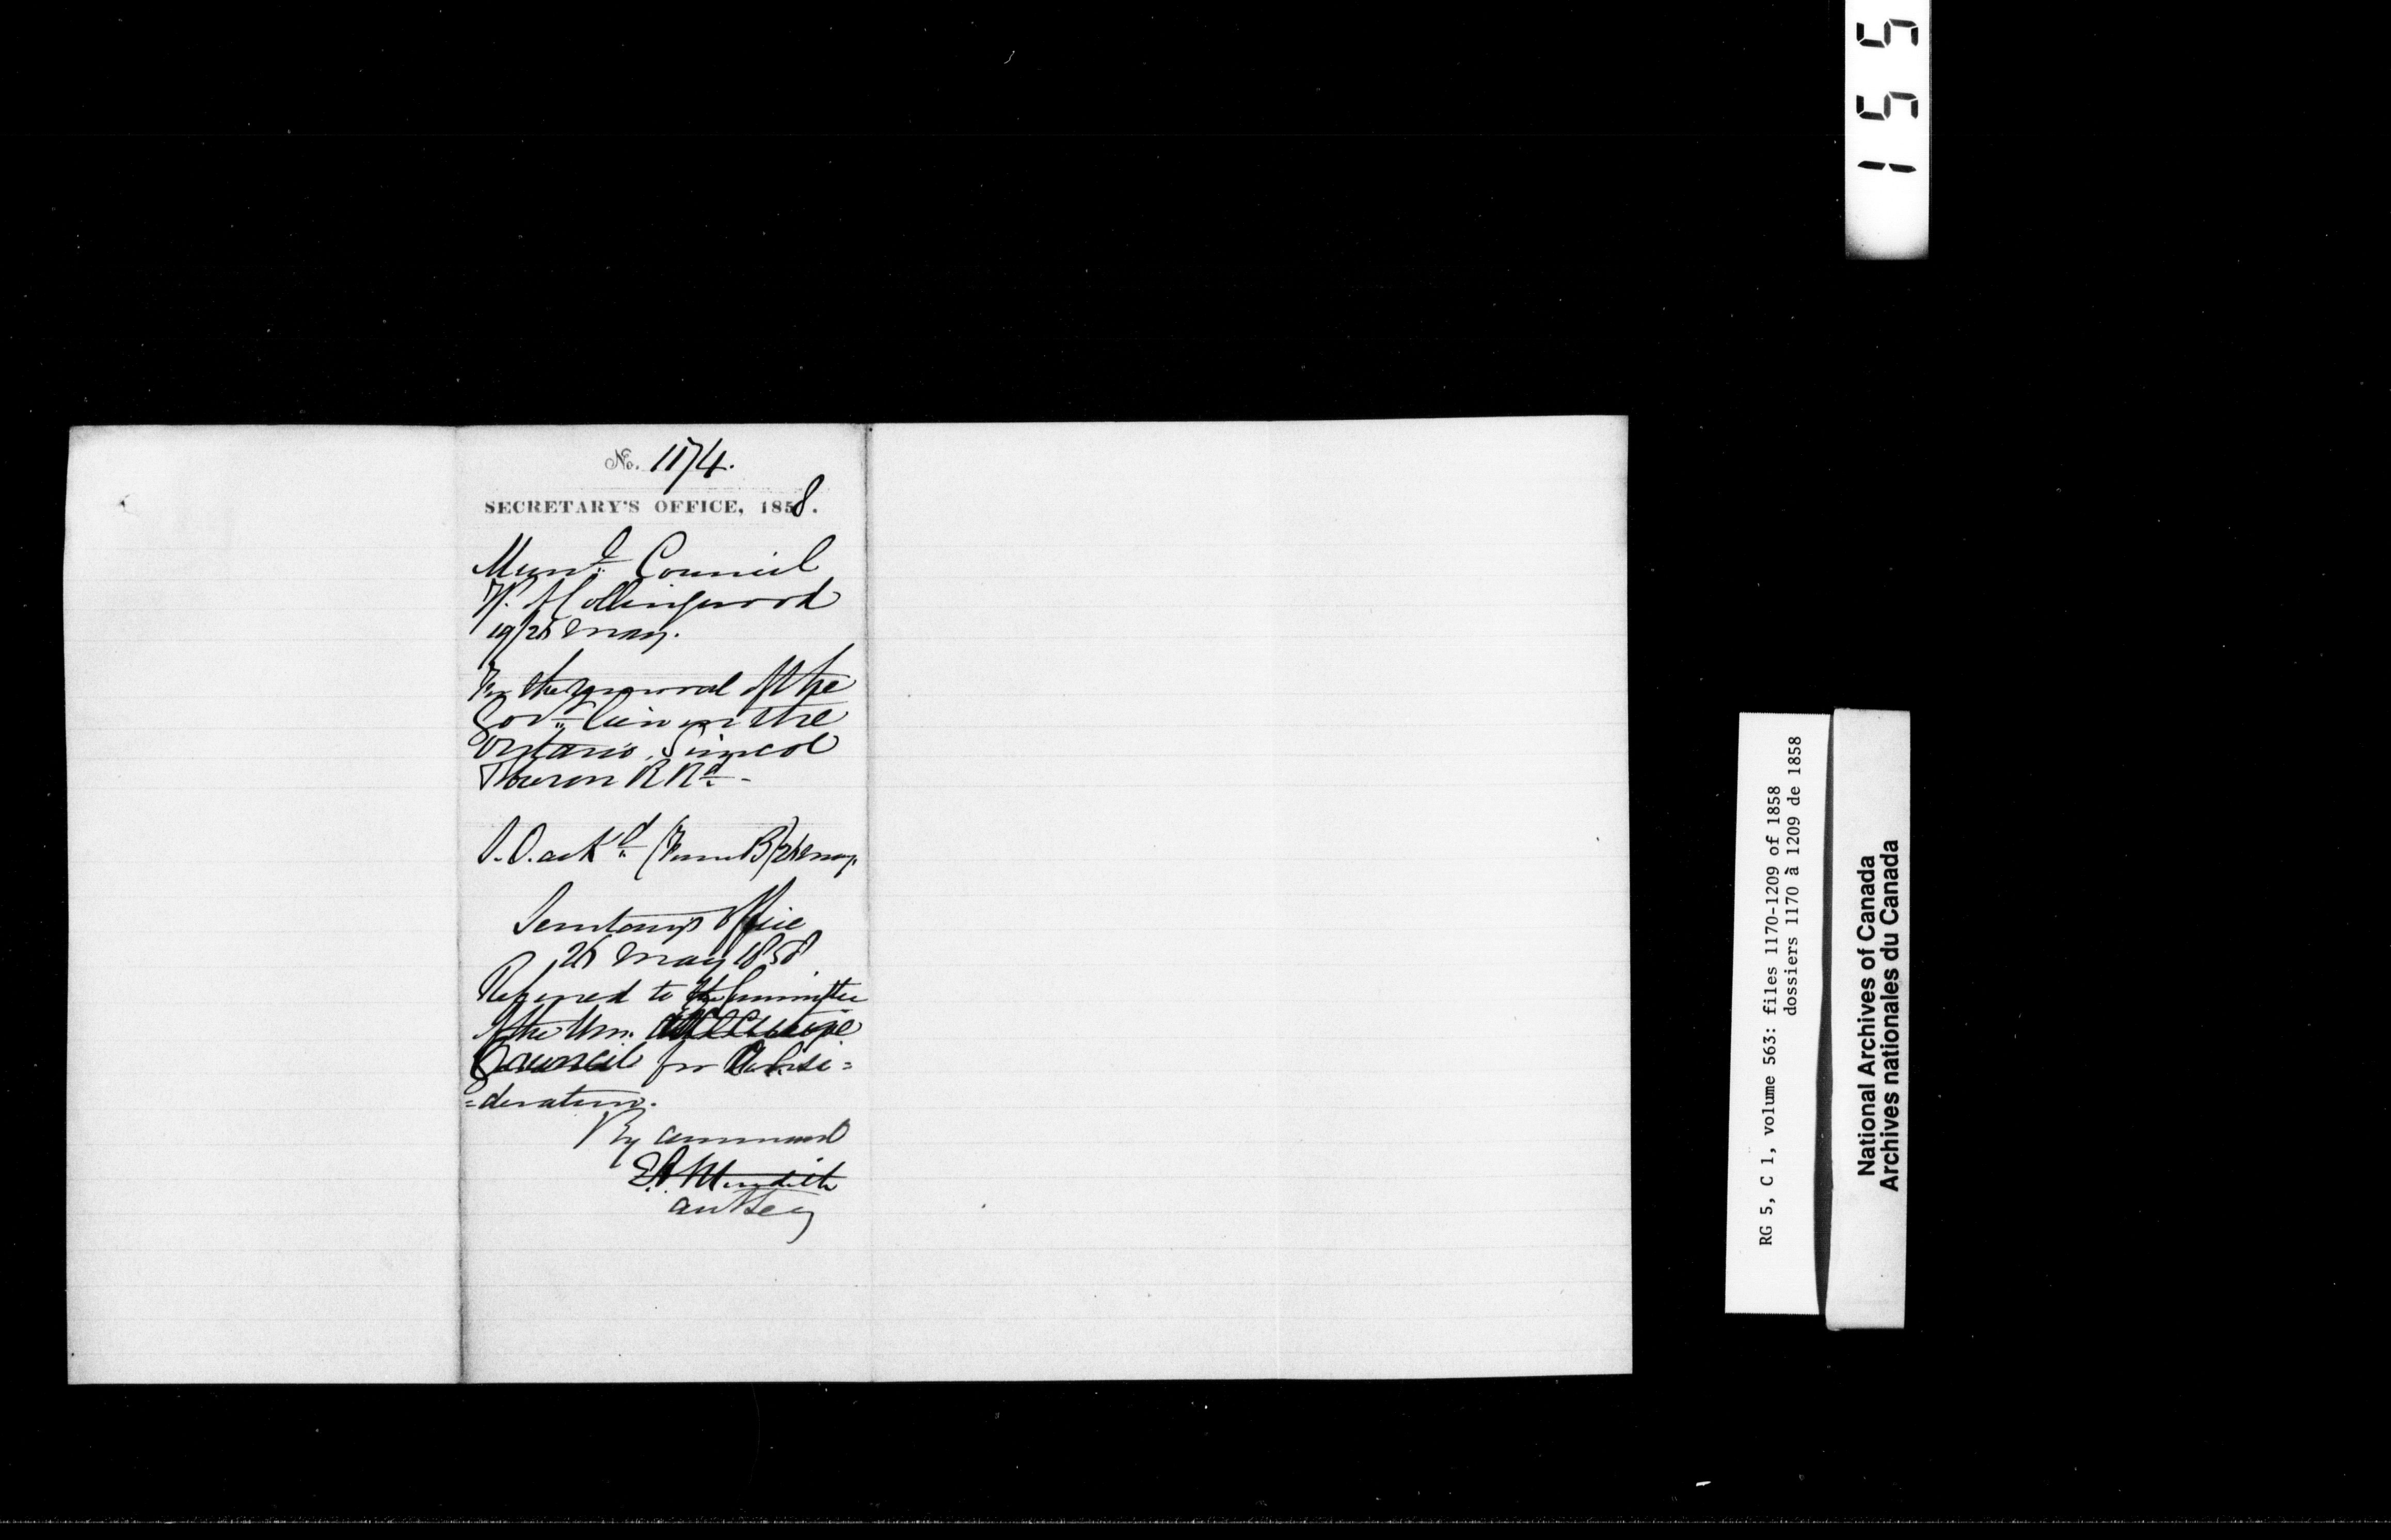 No. 1174.
SECRETARY'S OFFICE, 1858.
Munl. Council
T. Collingwood
19/26 May.
For the removal of the
Govt. lien on the
Ontario, Simcoe
Huron R Rd. -
S.O. ackd. (Form B) 26 May
Secretary's Office
26 May 1858
Referred to the Committee
of the Hon. the Executive
Council for Consi=
=deration.
By command
E.A. Meredith
Asst Secy
1551
RG 5, C 1, volume 563: files 1170-1209 of 1858
dossiers 1170 à 1209 de 1858
National Archives of Canada
Archives nationales du Canada